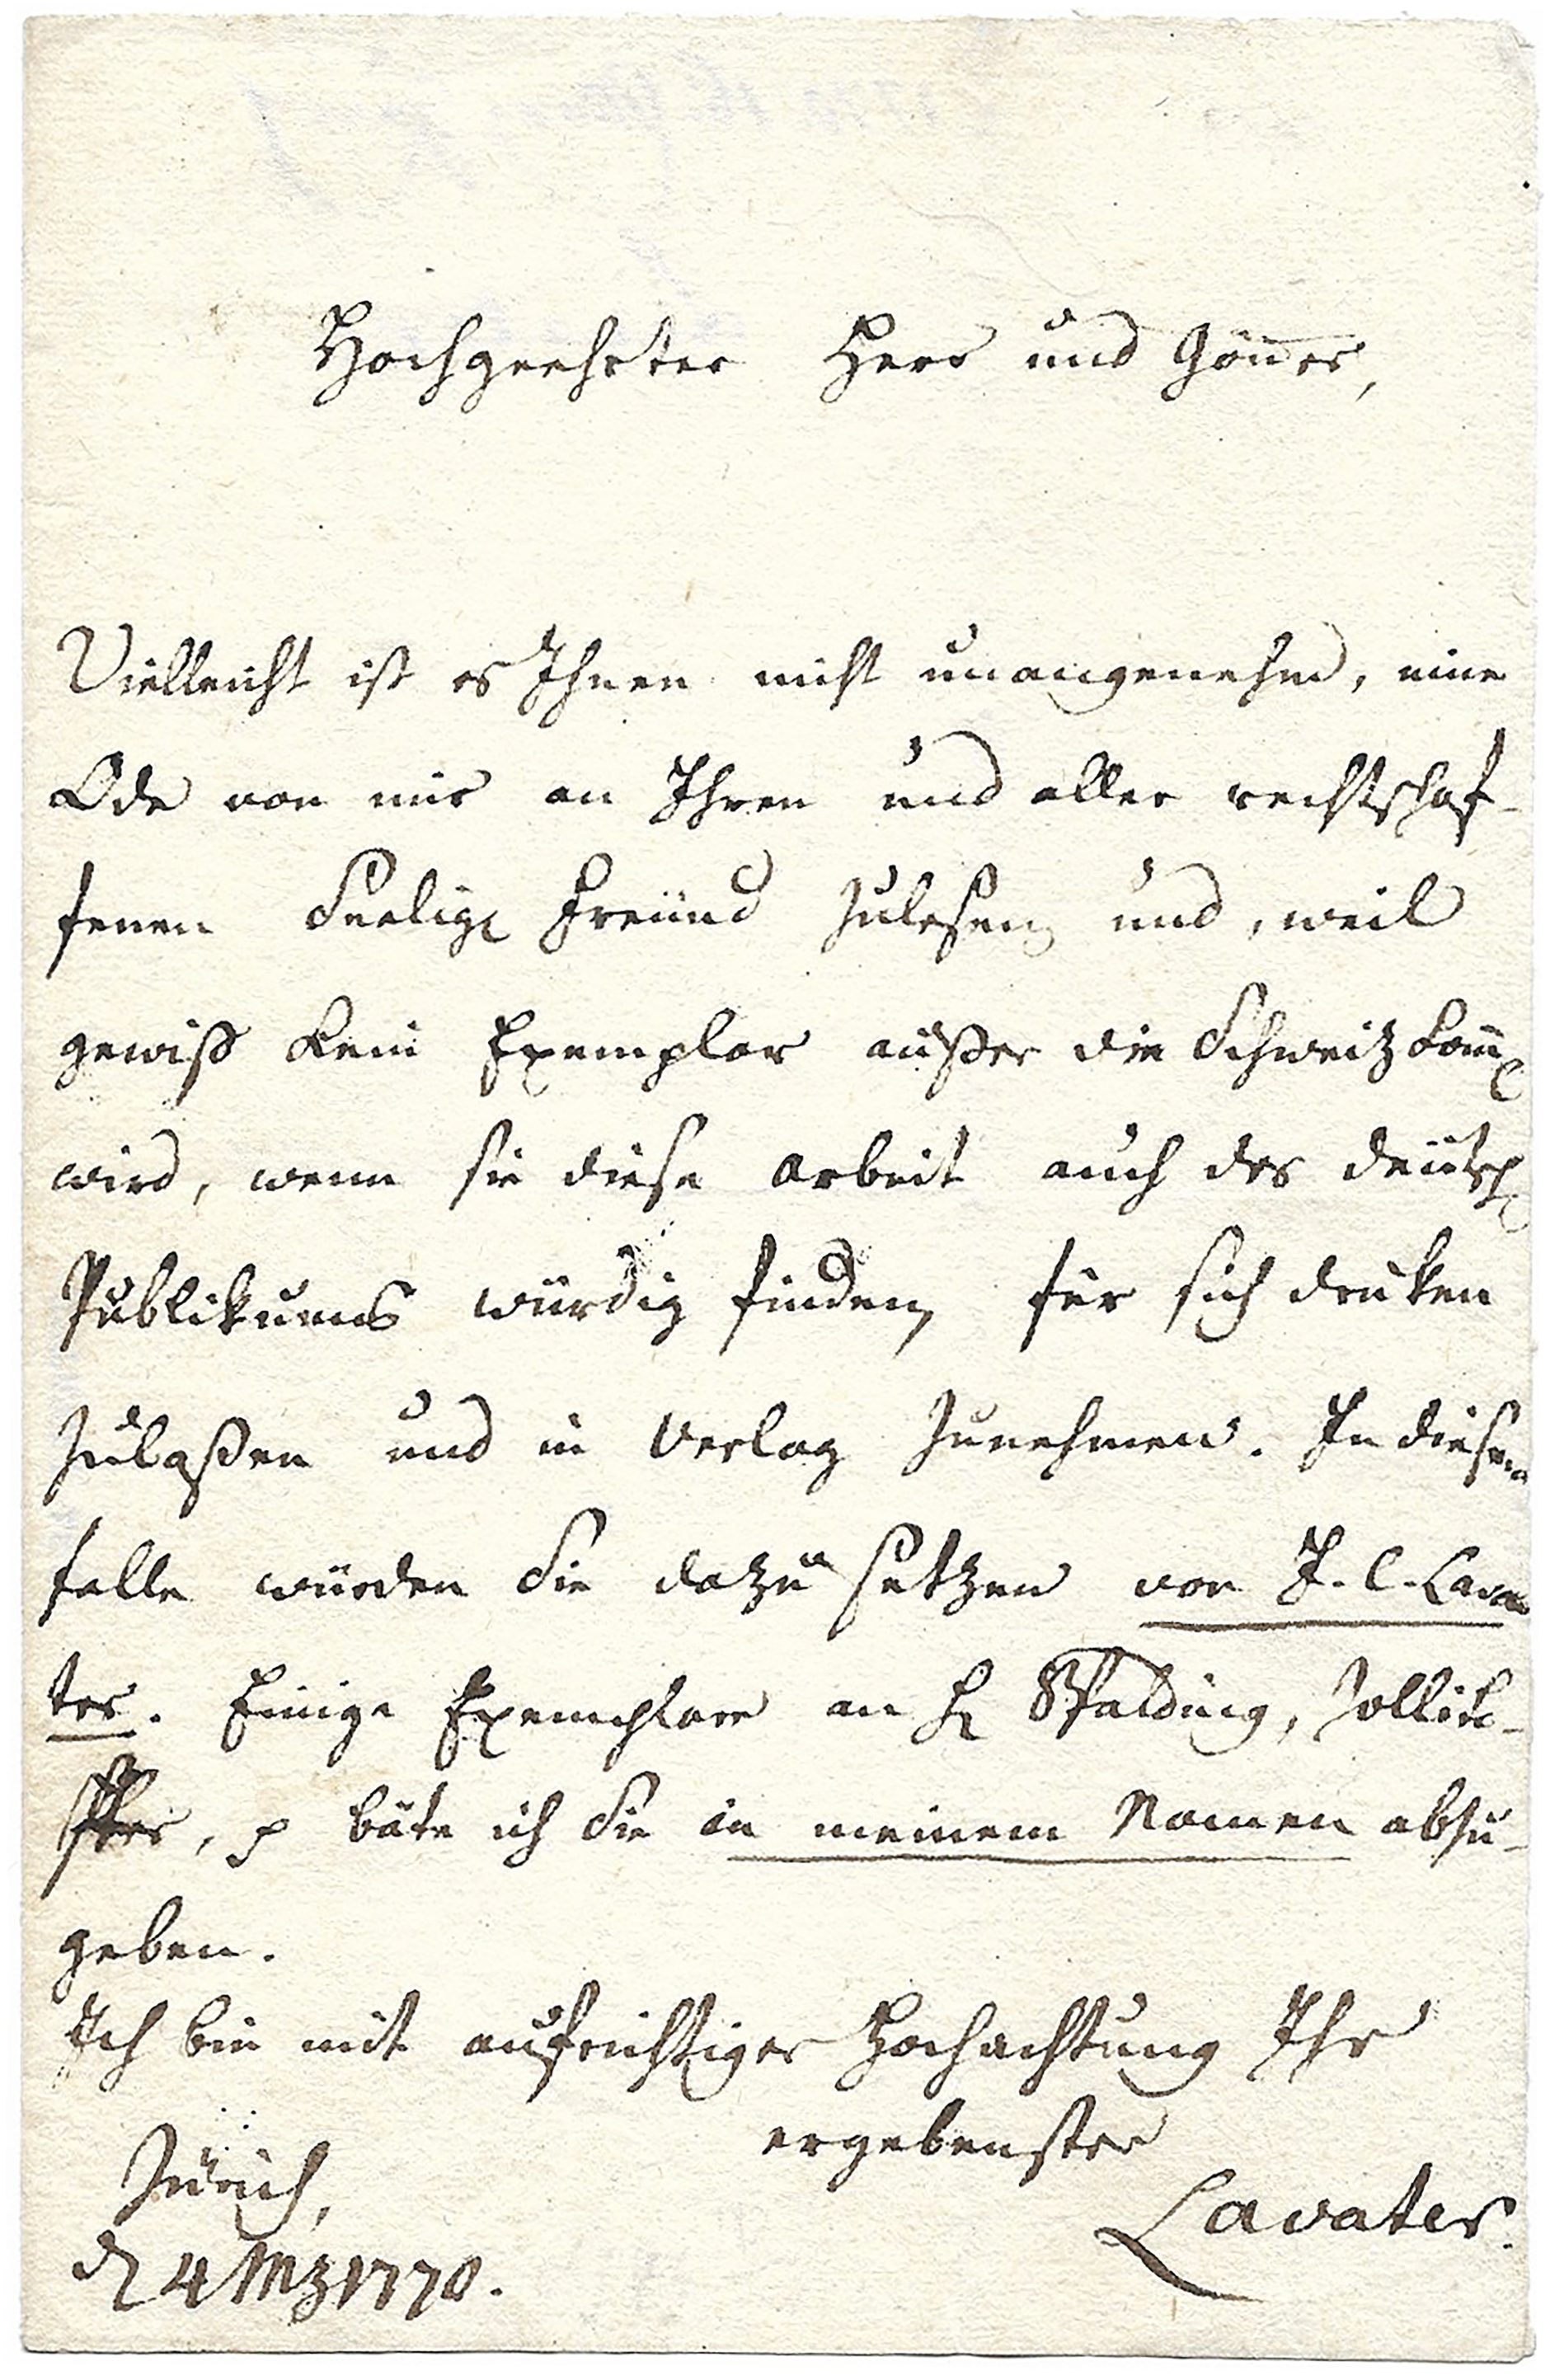 Hochgeehrter Herr und Gönner,
Vielleicht ist es Ihnen nicht unangenehm, eine
Ode von mir an Ihren und aller rechtschaf-
fenen Seelige Freünd zulesen und, weil
gewiß kein Exemplar außer die Schweitz kom̅e
wird, wenn sie diese Arbeit auch des deütsche
Publikums würdig finden, für sich druken
zulaßen und in Verlag zunehmen. In diesem
falle würden Sie dazu setzen von J. C. Lava
ter. Einige Exemplare an H. Spalding, Zolliko-
fer, p bäte ich Sie in meinem Namen abzu-
geben.
Ich bin mit aufrichtiger Hochachtung Ihr
ergebenster
Lavater.
Zürich,
d 4 Mz 1770.